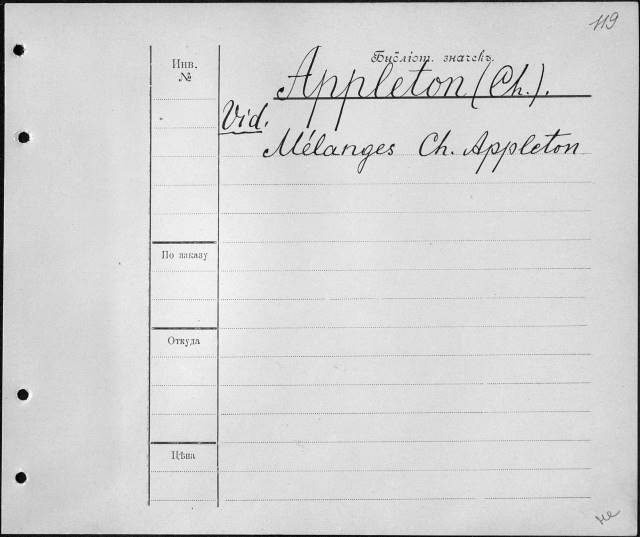 119
Библіот. значекъ.
Инв.
№
Appleton (Ch.).
Vid.
Mélanges Ch. Appleton
По заказу
Откуда
Цѣна
не